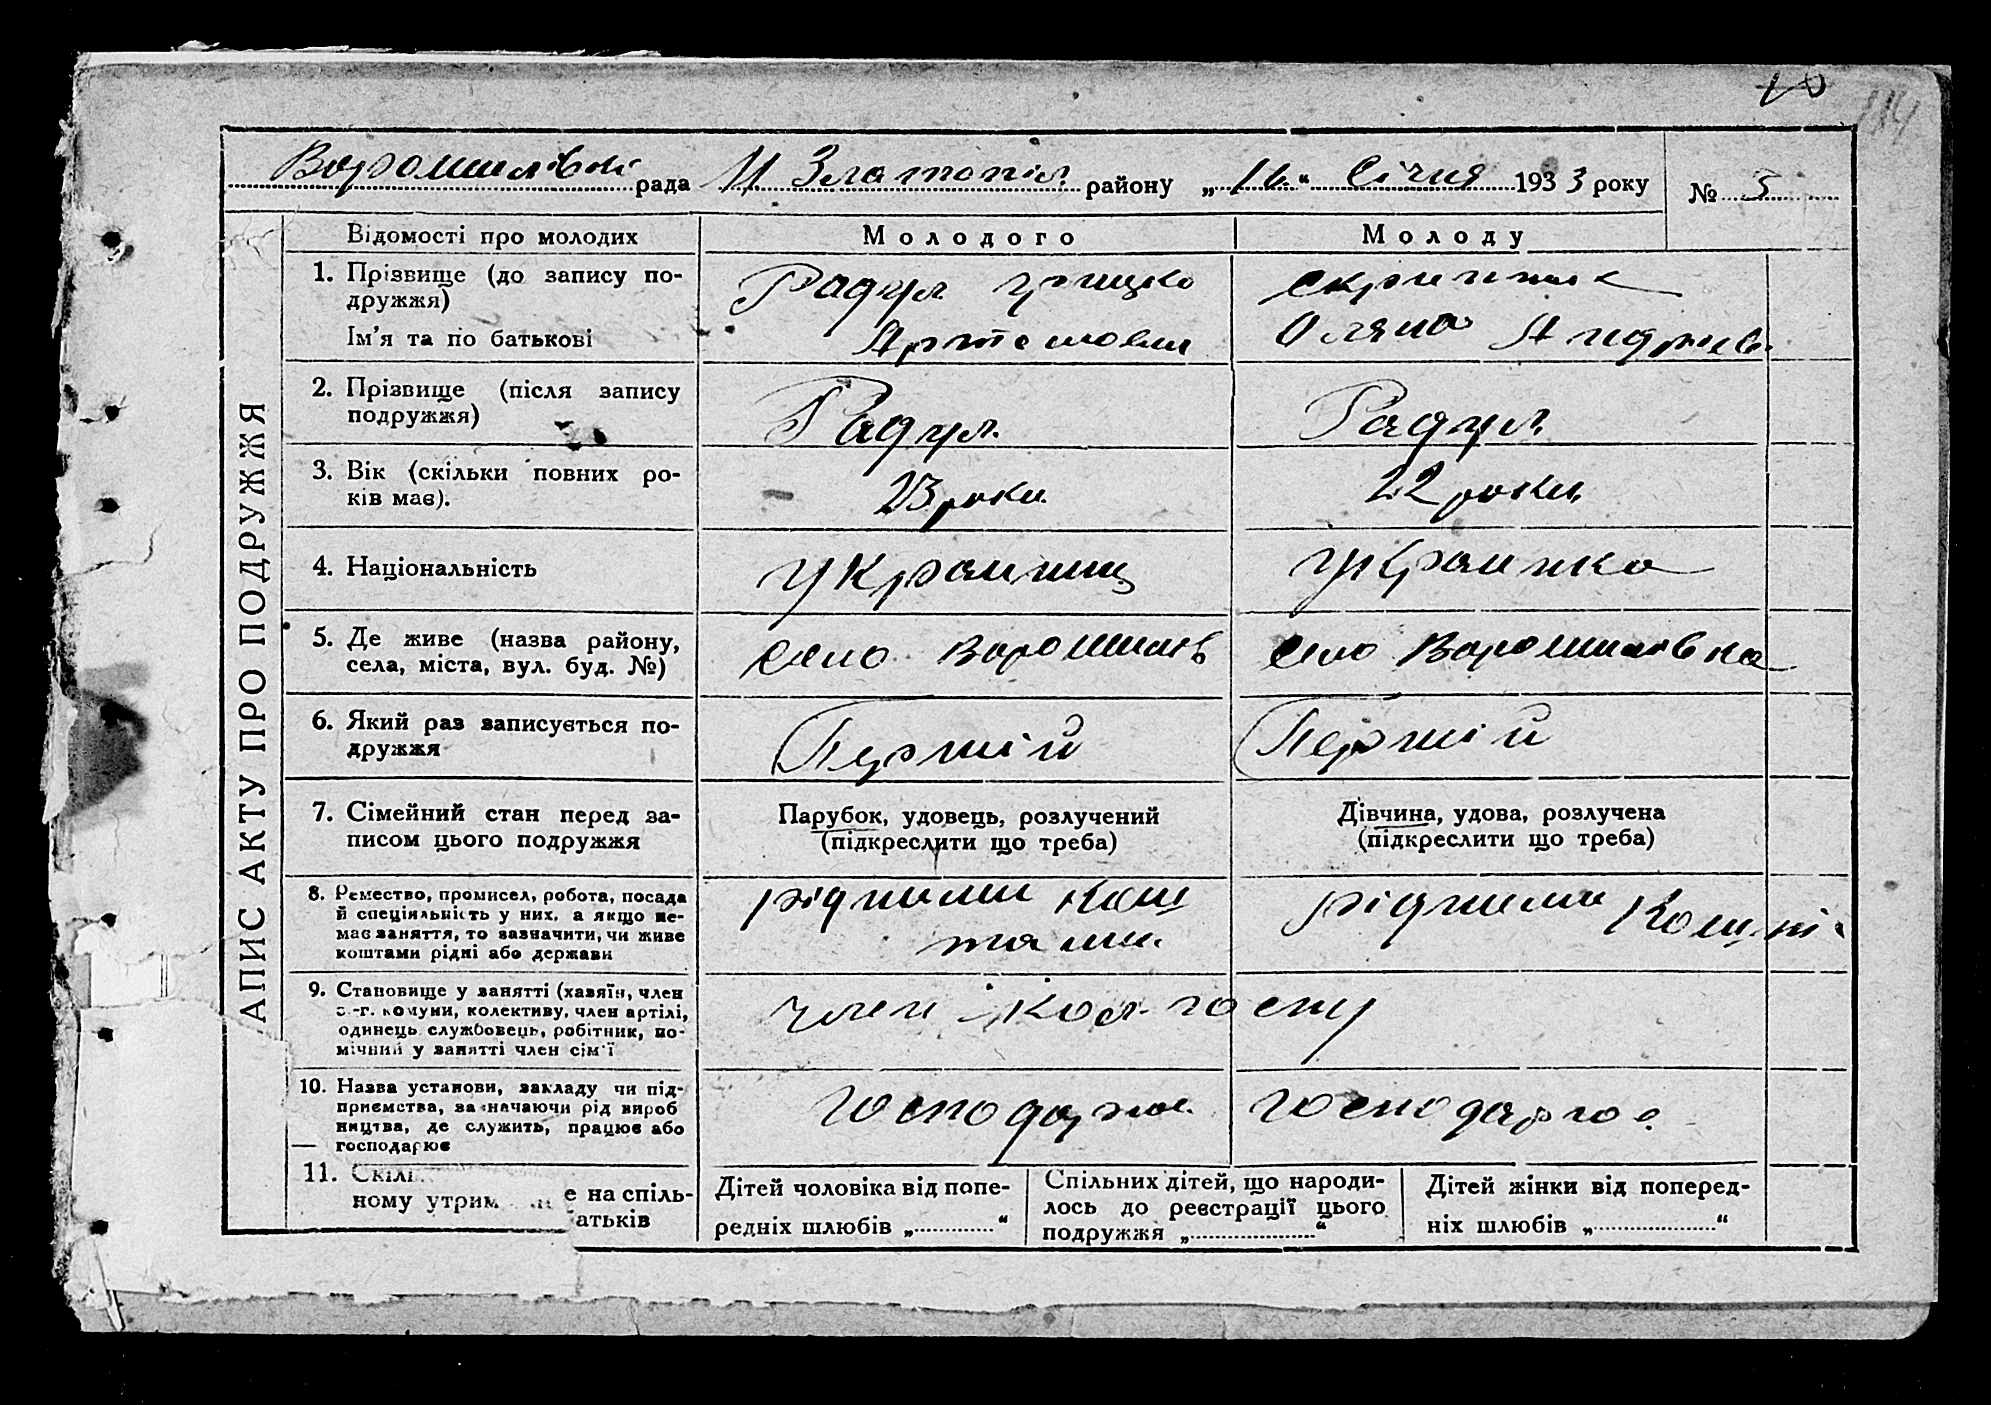 10
184
Ворошилівкі рада Н Златопіл району „16“ Січня 1933 року № 3
АПИС АКТУ ПРО ПОДРУЖЖЯ
Відомості про молодих Молодого Молоду
1. Прізвище (до запису по-
дружжя)
Радул Грицко Скрипник
Ім'я та по батькові Артемович Оляна Андріїв.
2. Прізвище (після запису
подружжя)
Радул Радул
3. Вік (скільки повних ро-
ків має).
23 роки 22 роки
4. Національність Украинец Украинка
5. Де живе (назва району,
села, міста, вул. буд. №)
село Ворошилів село Ворошилівка
6. Який раз записується по-
дружжя
Перший Перший
7. Сімейний стан перед за-
писом цього подружжя
Парубок, удовець, розлучений
(підкреслити що треба)
Дівчина, удова, розлучена
(підкреслити що треба)
8. Ремество, промисел, робота, посада
й спеціяльність у них, а якщо не-
має заняття, то зазначити, чи живе
коштами рідні або держави
рідними кош
тами.
рідними
9. Становище у занятті (хазяїн, член
с.-г. комуни, колективу, член артілі,
одинець службовець, робітник, по-
мічний у занятті член сім'ї
член колгоспу
10. Назва установи, закладу чи під-
приємства, зазначаючи рід вироб
ництва, де служить, працює або
господарює
господарює господарює
11. Скіль
ному утрим е на спіль-
атьків
Дітей чоловіка від попе-
редніх шлюбів „ “
Спільних дітей, що народи-
лось до реєстрації цього
подружжя „ “
Дітей жінки від поперед-
ніх шлюбів „ “